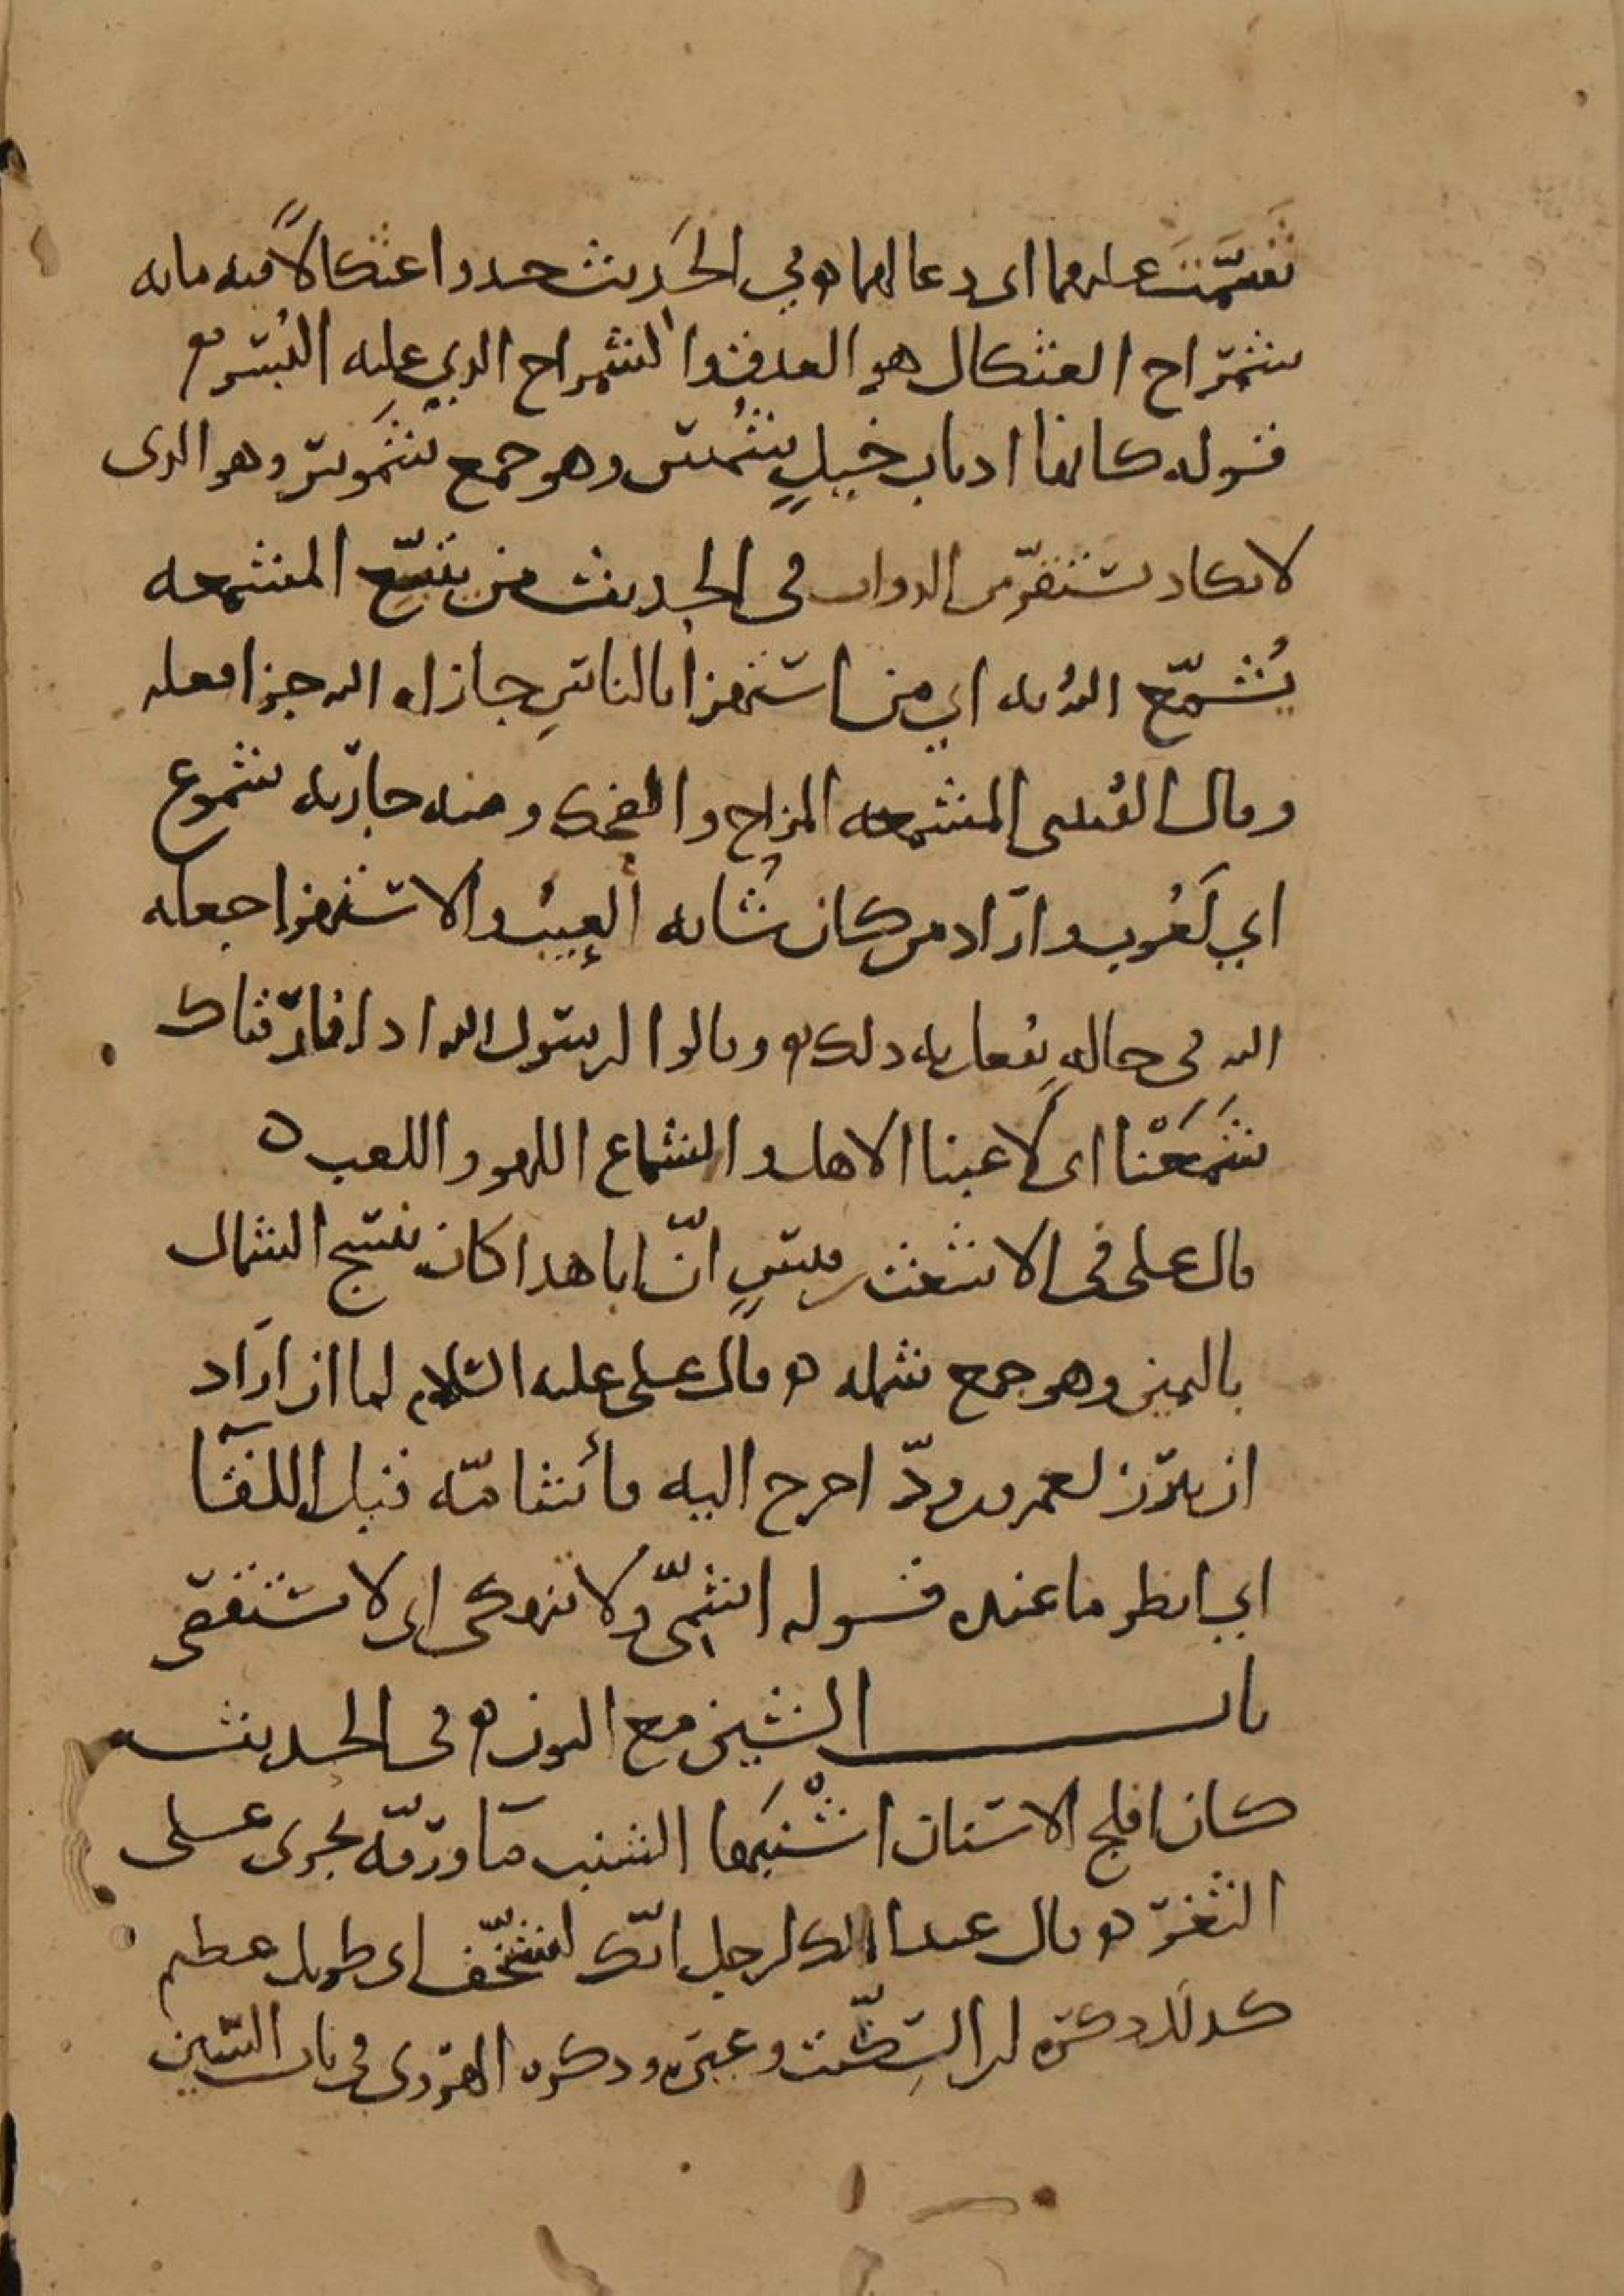 فسمّت عليهما اى دعا لهما ه وفي الحديث خذوا عثكالًا فيه مايه
شمراخ العثكال هو العذق والشمراخ الذي عليه البُسر ه
قوله كانها اذناب خيلٍ شُمسٍ وهو جمع شَموس وهو الذى
لا يكاد يستقرّ من الدواب في الحديث من يتبّع المشمعه
يُشمّع اللهُ به اي من استهزا بالناسِ جازاه الله جزا فعله
وقال القُتبى المشمعه المزاح والضحك ومنه جاريه شموع
اي لَعُوب واراد من كان شانه العيبُ والاستهزا جعله
الله في حالهٍ يُعاب به ذلك ه وقالوا لرسول الله اذا فارقناك
شَمَعْنا اى لَاعبنا الاهل والشماع اللهو واللعب ه
قال على في الاشعث بن قيسٍ انّ ابا هذا كان ينسج الشمال
باليمين وهو جمع شمله ه قال على عليه السلام لما ان اراد
ان يبرز لعمرو بن ودّ اخرج اليه فأشامّه قبل اللقآ
اي انظر ما عنده قوله اشِمّى ولا تنهكى اى لا تستقصى
باب الشين مع النون ه في الحديث
كان افلج الاسنان اشْنبَها الشنب مآ ورقّه يجرى على
الثغر ه قال عبد الملك لرجل انّك لشنّخف اى طويل عظيم
كذلك ذكره ابن السِكّيت وغيره وذكره الهروى في باب السين